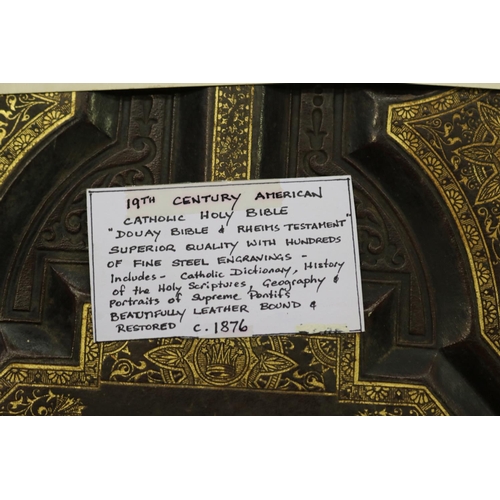 19TH CENTURY AMERICAN
CATHOLIC HOLY BIBLE
"DOUAY BIBLE & RHEIMS TESTAMENT"
SUPERIOR QUALITY WITH HUNDREDS
OF FINE STEEL ENGRAVINGS -
Includes - Catholic Dictionary, History
of the Holy Scriptures, Geography &
Portraits of Supreme Pontifs
BEAUTIFULLY LEATHER BOUND &
RESTORED C. 1876